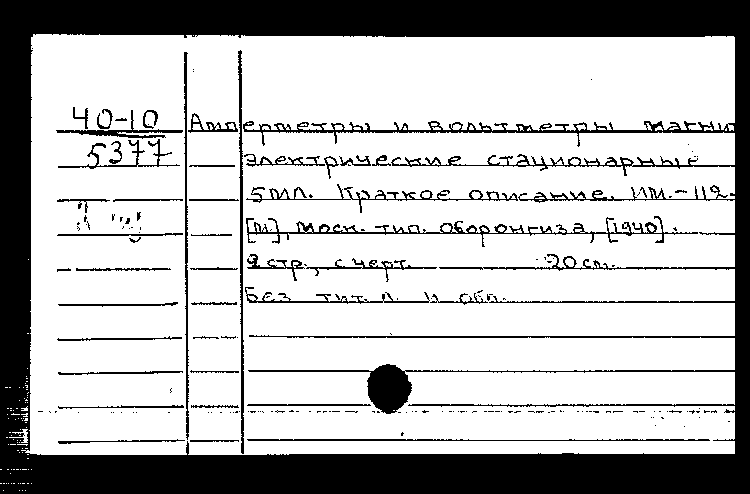 40-10
5377
Амперметры и вольтметры магни
электрические стационарные
5МЛ. Краткое описание. ИМ.-112.
[М], Моск. тип. Оборонгиза, [1940].
2 стр., с черт. 20 см.
Без тит. л. и обл.